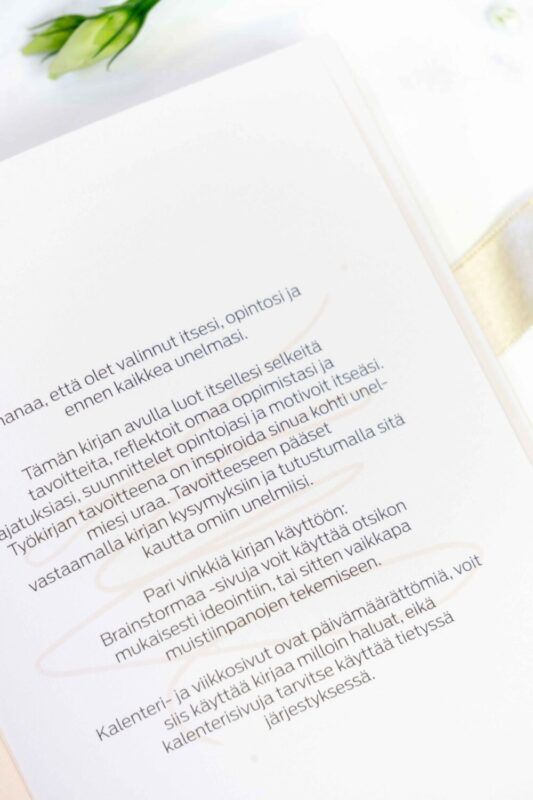 että olet valinnut itsesi, opintosi ja
ennen kaikkea unelmasi.
Tämän kirjan avulla luot itsellesi selkeitä
tavoitteita, reflektoit omaa oppimistasi ja
ajatuksiasi, suunnittelet opintojasi ja motivoit itseäsi.
Työkirjan tavoitteena on inspiroida sinua kohti unel-
miesi uraa. Tavoitteeseen pääset
vastaamalla kirjan kysymyksiin ja tutustumalla sitä
kautta omiin unelmiisi.
Pari vinkkiä kirjan käyttöön:
Brainstormaa -sivuja voit käyttää otsikon
mukaisesti ideointiin, tai sitten vaikkapa
muistiinpanojen tekemiseen.
Kalenteri- ja viikkosivut ovat päivämäärättömiä, voit
siis käyttää kirjaa milloin haluat, eikä
kalenterisivuja tarvitse käyttää tietyssä
järjestyksessä.